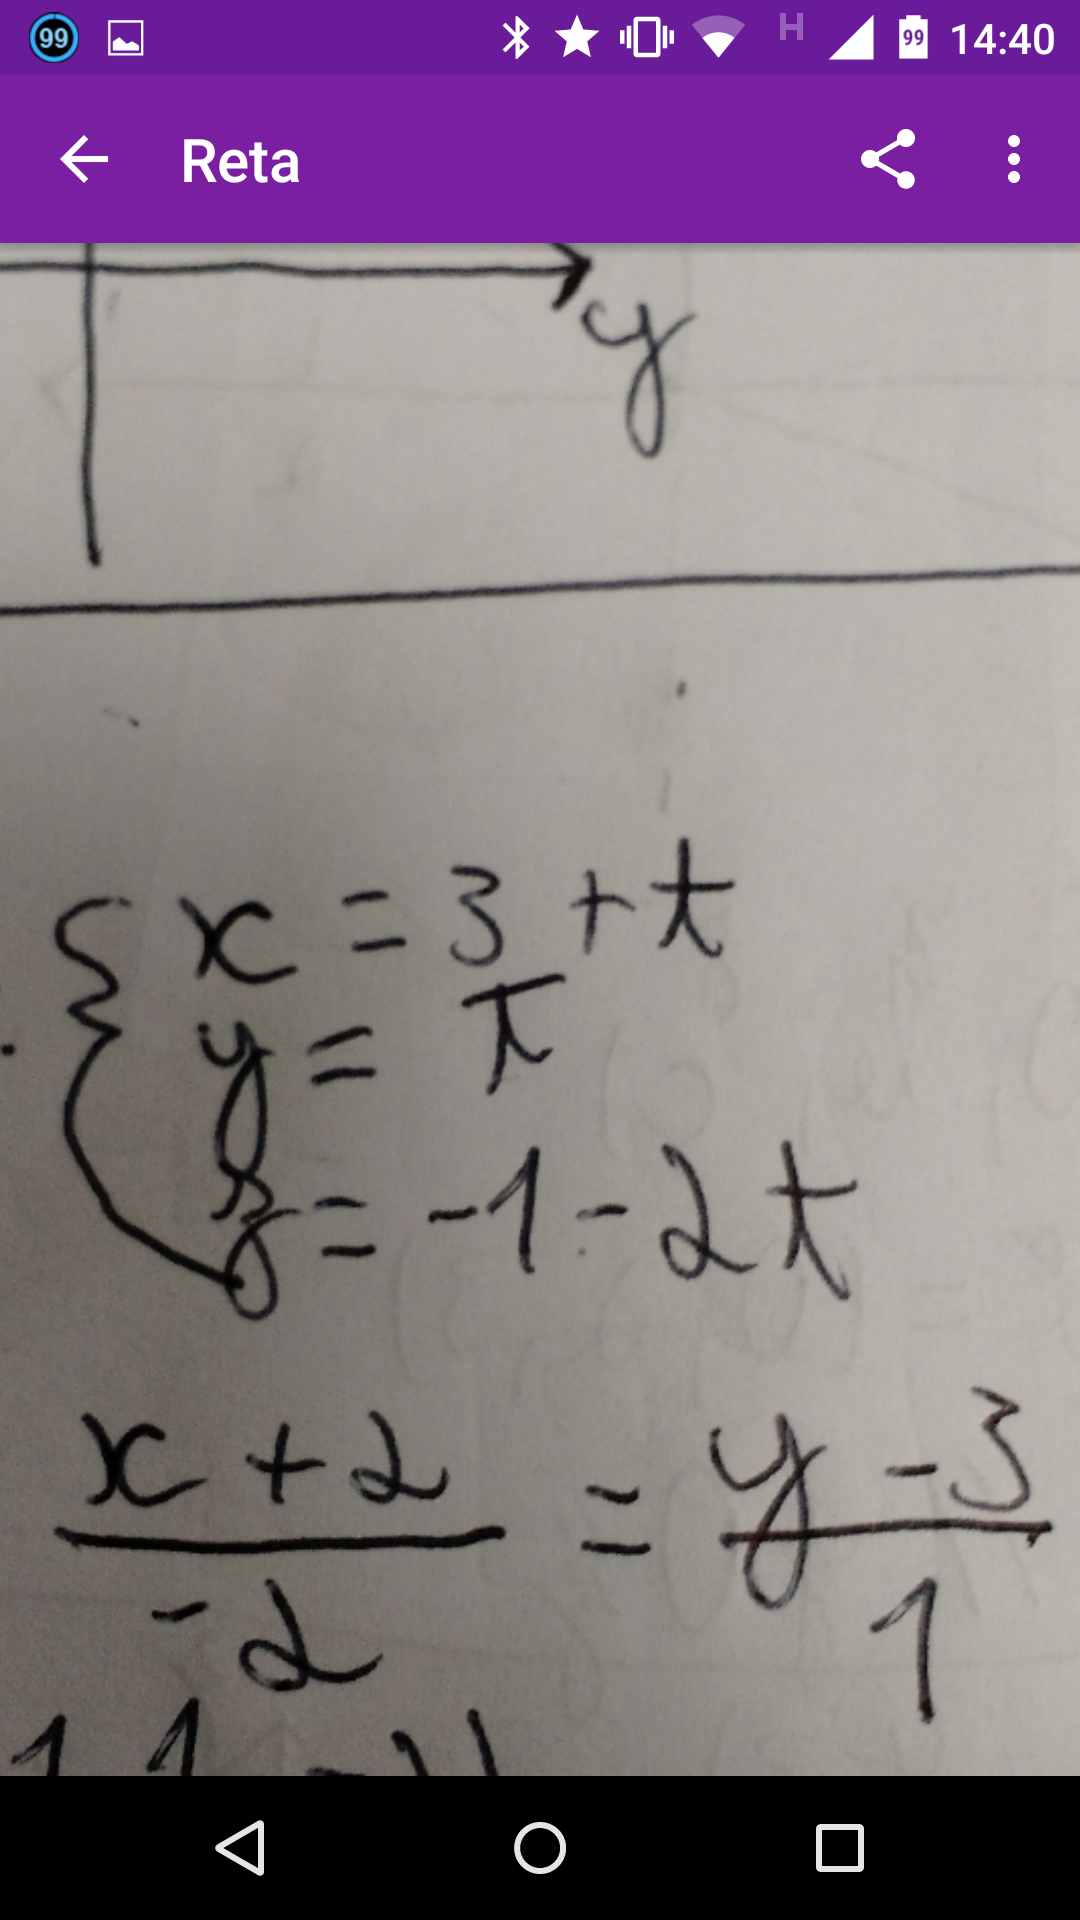 99 H 99 14:40
Reta
y
x = 3 + t
y = π
z = -1 - 2t
x + 2 = y - 3
-2 1